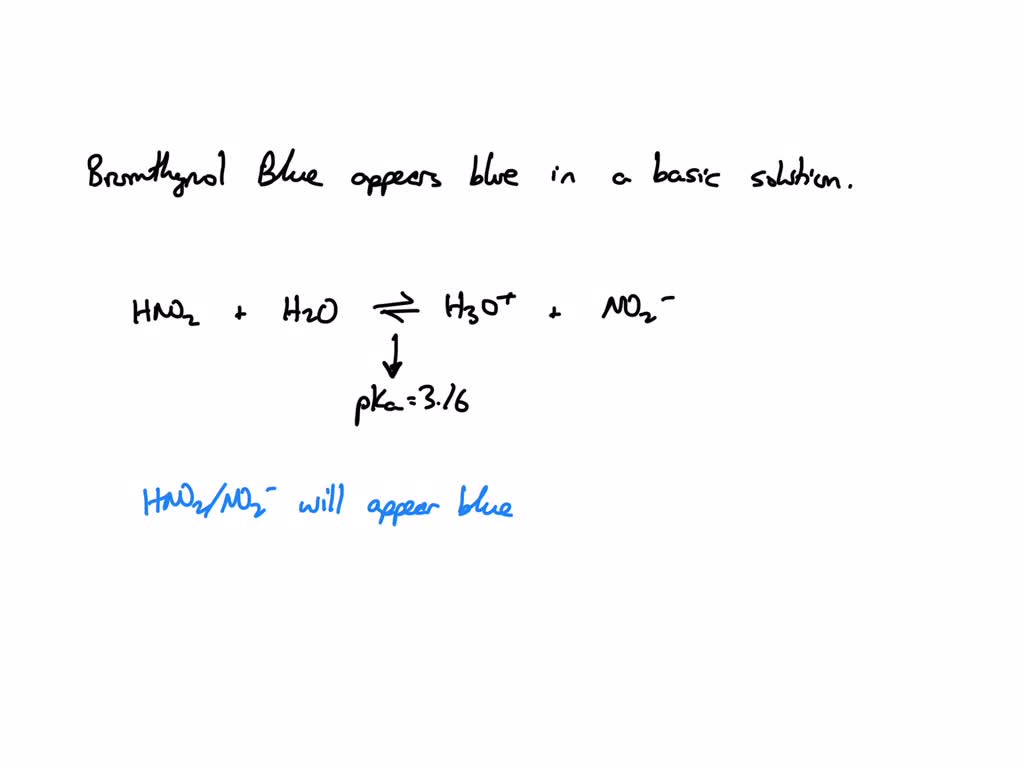 Bromthymol Blue appears blue in a basic solution.
HNO2 + H2O ⇌ H3O+ + NO2-
↓
pKa=3.16
HNO2/NO2- will appear blue